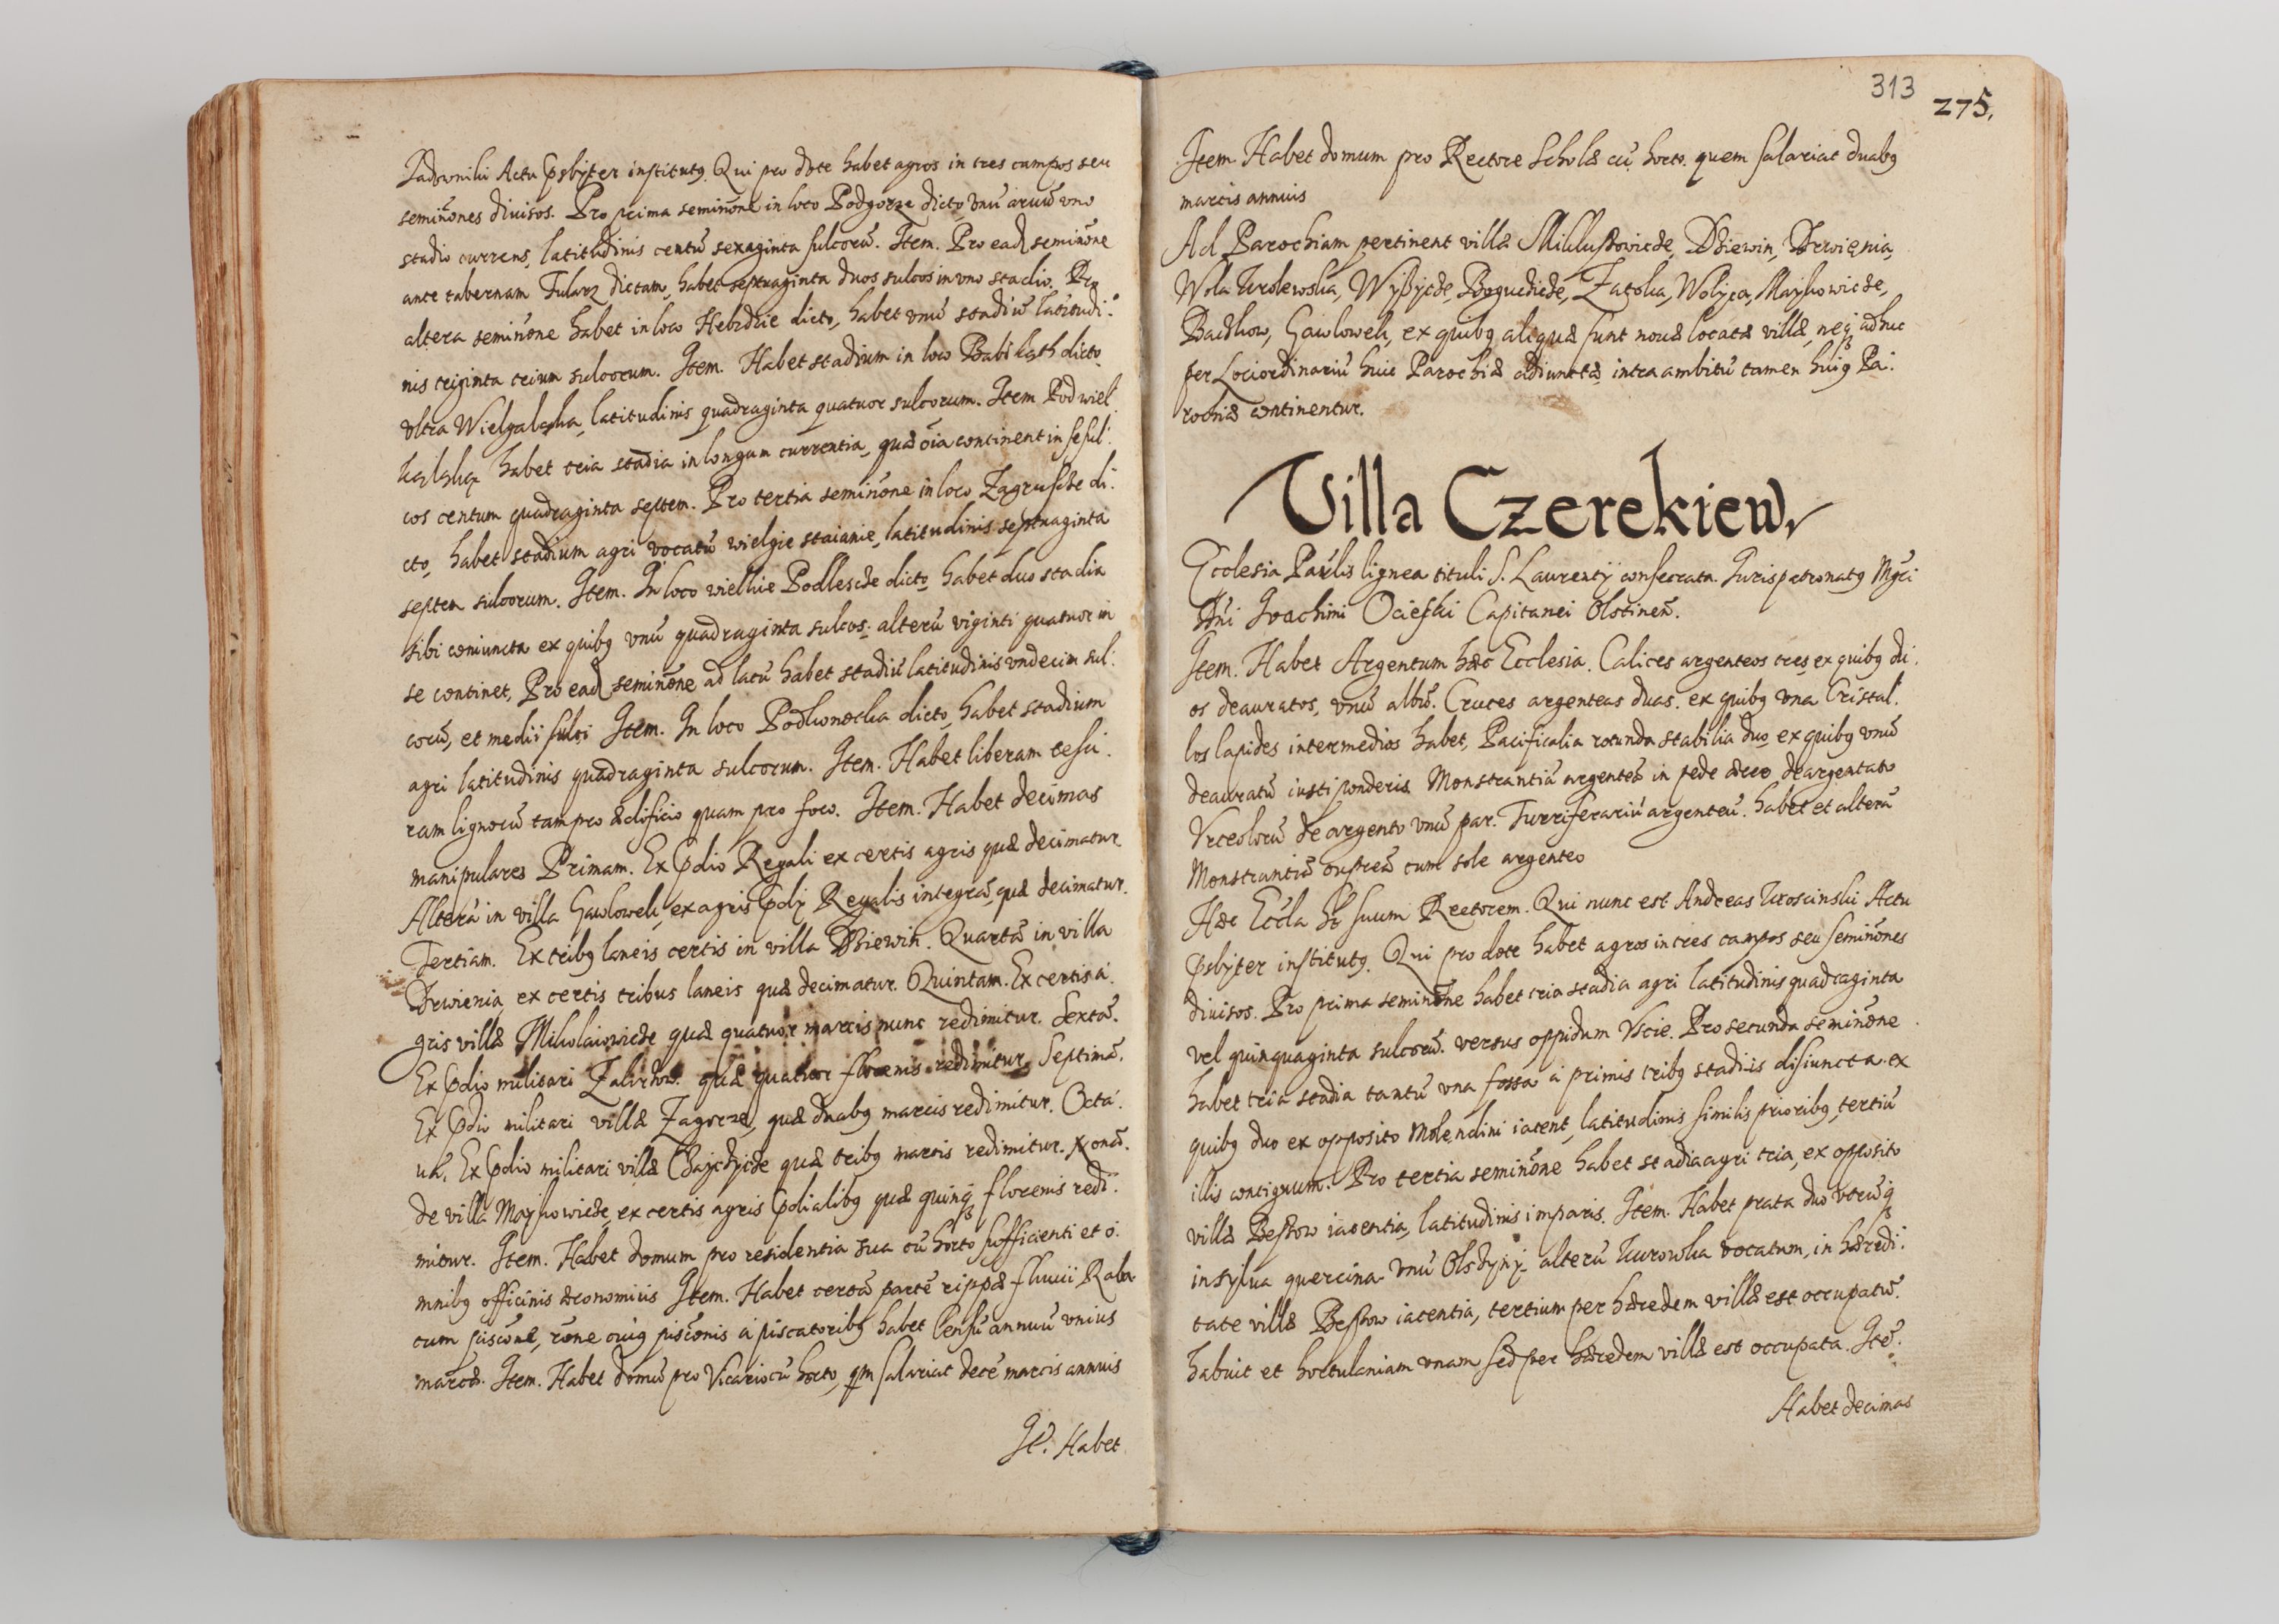 Sadowniki Actu psbyter institutꝯ. Qui pro dote habet agros in tres campos seu
seminōnes diuisos. Pro prima seminōne in loco Podgorze dicto vnū aruū vno
stadio currens, latitudinis centū sexaginta sulcorū. Item. Pro ead seminōne
ante tabernam Tularz dictam, habet septuaginta duos sulcos in vno stadio. Pro
altera seminōne habet in loco Hebdzie dicto, habet vnū stadiū latitudi:
nis triginta trium sulcorum. Item. Habet stadium in loco Babi kąth dicto
vltra Wielgaląka, latitudinis quadraginta quatuor sulcorum. Item Pod wiel
ką ląką habet tria stadia in longum currentia, quæ oīa continent in se sul:
cos centum quadraginta septem. Pro tertia seminōne in loco Zagruscze di:
cto, habet stadium agri vocatū wielgie staianie, latitudinis septuaginta
septem sulcorum. Item. In loco wielkie Podlescze dicto habet duo stadia
sibi coniuncta ex quibꝯ vnū quadraginta sulcos: alterū viginti quatuor in
se continet, Pro ead seminōne ad latū habet stadiū latitudinis vndecim sul:
corū, et medii sulci Item. In loco Podkonocka dicto, habet stadium
agri latitudinis quadraginta sulcorum. Item. Habet liberam cesu:
ram lignorū tam pro ædificio quam pro foco. Item. Habet decimas
manipulares Primam. Ex pdio Regali ex certis agris quæ decimatur.
Alterā in villa Gawlowek, ex agris pdij Regalis integrā, quæ decimatur.
Tertiam. Ex tribꝯ laneis certis in villa Dziewin. Quartā in villa
Drwienia, ex certis tribus laneis quæ decimatur. Quintam. Ex certis a:
gris villæ Mikolaiowicze quæ quatuor marcis nunc redimitur. Sextā.
Ex pdio militari Zalirzow. quæ quatuor florenis redimitur. Septimā.
Ex pdio militari villæ Zagorze, quæ duabꝯ marcis redimitur. Octa:
uā, Ex pdio militari villæ Chayczycze quæ tribꝯ marcis redimitur. Nonā.
de villa Mayskowicze, ex certis agris pdialibꝯ quæ quinqꝫ florenis redi:
mitur. Item. Habet domum pro residentia sua cū horto sufficienti et o:
mnibꝯ officinis œconomiiis Item. Habet certā partē rippæ fluuii Raba
cum piscōne, rōne cuiꝯ piscōnis à piscatoribꝯ habet censū annuū vnius
marcæ. Item. Habet domū pro Vicario cū horto, qm salariat decē marcis annuis
It. Habet
313
275.
Item. Habet domum pro Rectore Scholæ cū horto. quem salariat duabꝯ
marcis annuis
Ad Parochiam pertinent villæ Mikluszowicze, Dziewin, Drwienia,
Wola krolewska, Wyżycze, Bogucicze, Zatoka, Wolyca, Mayskowicze,
Baczkow, Gawlowek, ex quibꝯ aliquæ sunt nouæ locatæ villæ, neqꝫ adhuc
per Loci ordinariū huic Parochiæ adiunctæ, intra ambitū tamen huiꝯ Pa:
rochiæ continentur.
Villa Czerekiew,
Ecclesia Parlis lignea tituli S. Laurentij consecrata. Iuris patronatꝯ Mgci
Dni Ioachimi Ocieski Capitanei Olstinen̄.
Item. Habet Argentum hæc Ecclesia. Calices argenteos tres, ex quibꝯ du:
os deauratos, vnū albū. Cruces argenteas duas. ex quibꝯ vna Cristal:
los lapides intermedios habet, Pacificalia rotunda stabilia duo ex quibꝯ vnū
deauratū iusti ponderis Monstrantiā argenteā in pede æreo deargentato
Vrceolorū de argento vnū par. Turriferariū argenteū. habet et alterā
Monstrantiā cupreā cum sole argenteo
Hæc Eccla ht suum Rectorem. Qui nunc est Andreas kroscinski Actu
psbyter institutꝯ. Qui pro dote habet agros in tres campos seu seminōnes
diuisos. Pro prima seminōne habet tria stadia agri latitudinis quadraginta
vel quinquaginta sulcorū. versus oppidum Vscie. Pro secunda seminōne
habet tria stadia tantū vna fossa à primis tribꝯ stadiis disiuncta. ex
quibꝯ duo ex opposito Molendini iacent, latitudinis similis prioribꝯ, tertiū
illis contiguum. Pro tertia seminōne habet stadia agri tria, ex opposito
villæ Beszow iacentia, latitudinis imparis. Item. Habet prata duo vtrūqꝫ
in sylua quercina. vnū Olszyny. alterū kurowka vocatum, in hæredi:
tate villæ Beszow iacentia, tertium per hæredem villæ est occupatū.
habuit et hortulaniam vnam sed per hæredem villæ est occupata. Itē.
Habet decimas